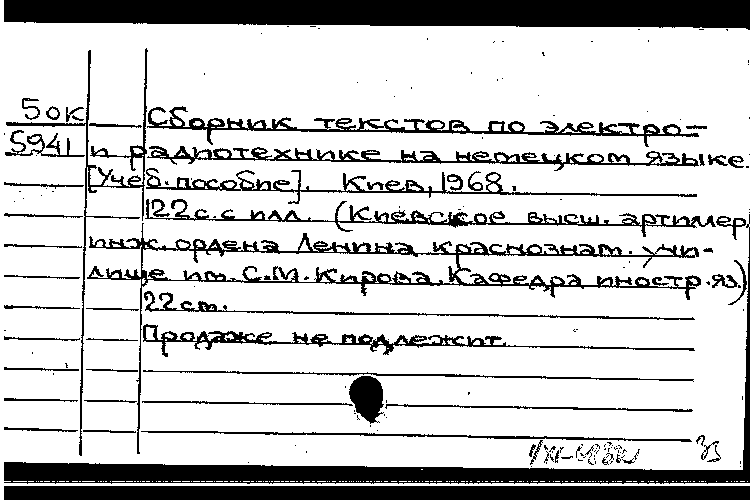 50к Сборник текстов по электро-
5941 и радиотехнике на немецком языке.
[Учеб. пособие]. Киев, 1968.
122 с. с илл. (Киевское высш. артиллер.
инж. ордена Ленина краснознам. учи-
лище им. С.М. Кирова. Кафедра иностр. яз.)
22 см.
Продаже не подлежит.